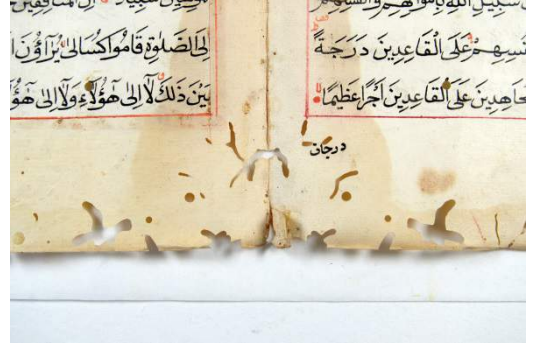 سَبِيلِ اللّٰهِ بِاَمْوَالِهِمْ وَاَنْفُسِهِمْ
نْفُسِهِمْ عَلَى الْقَاعِدِينَ دَرَجَةً
جَاهِدِينَ عَلَى الْقَاعِدِينَ اَجْرًا عَظِيمًا
درجات
سَبِيلًا اِنَّ الْمُنَافِقِينَ
اِلَى الصَّلٰوةِ قَامُوا كُسَالٰى يُرَاؤُنَ
بَيْنَ ذٰلِكَ لَا اِلٰى هٰؤُلَاءِ وَلَا اِلٰى هٰؤُ